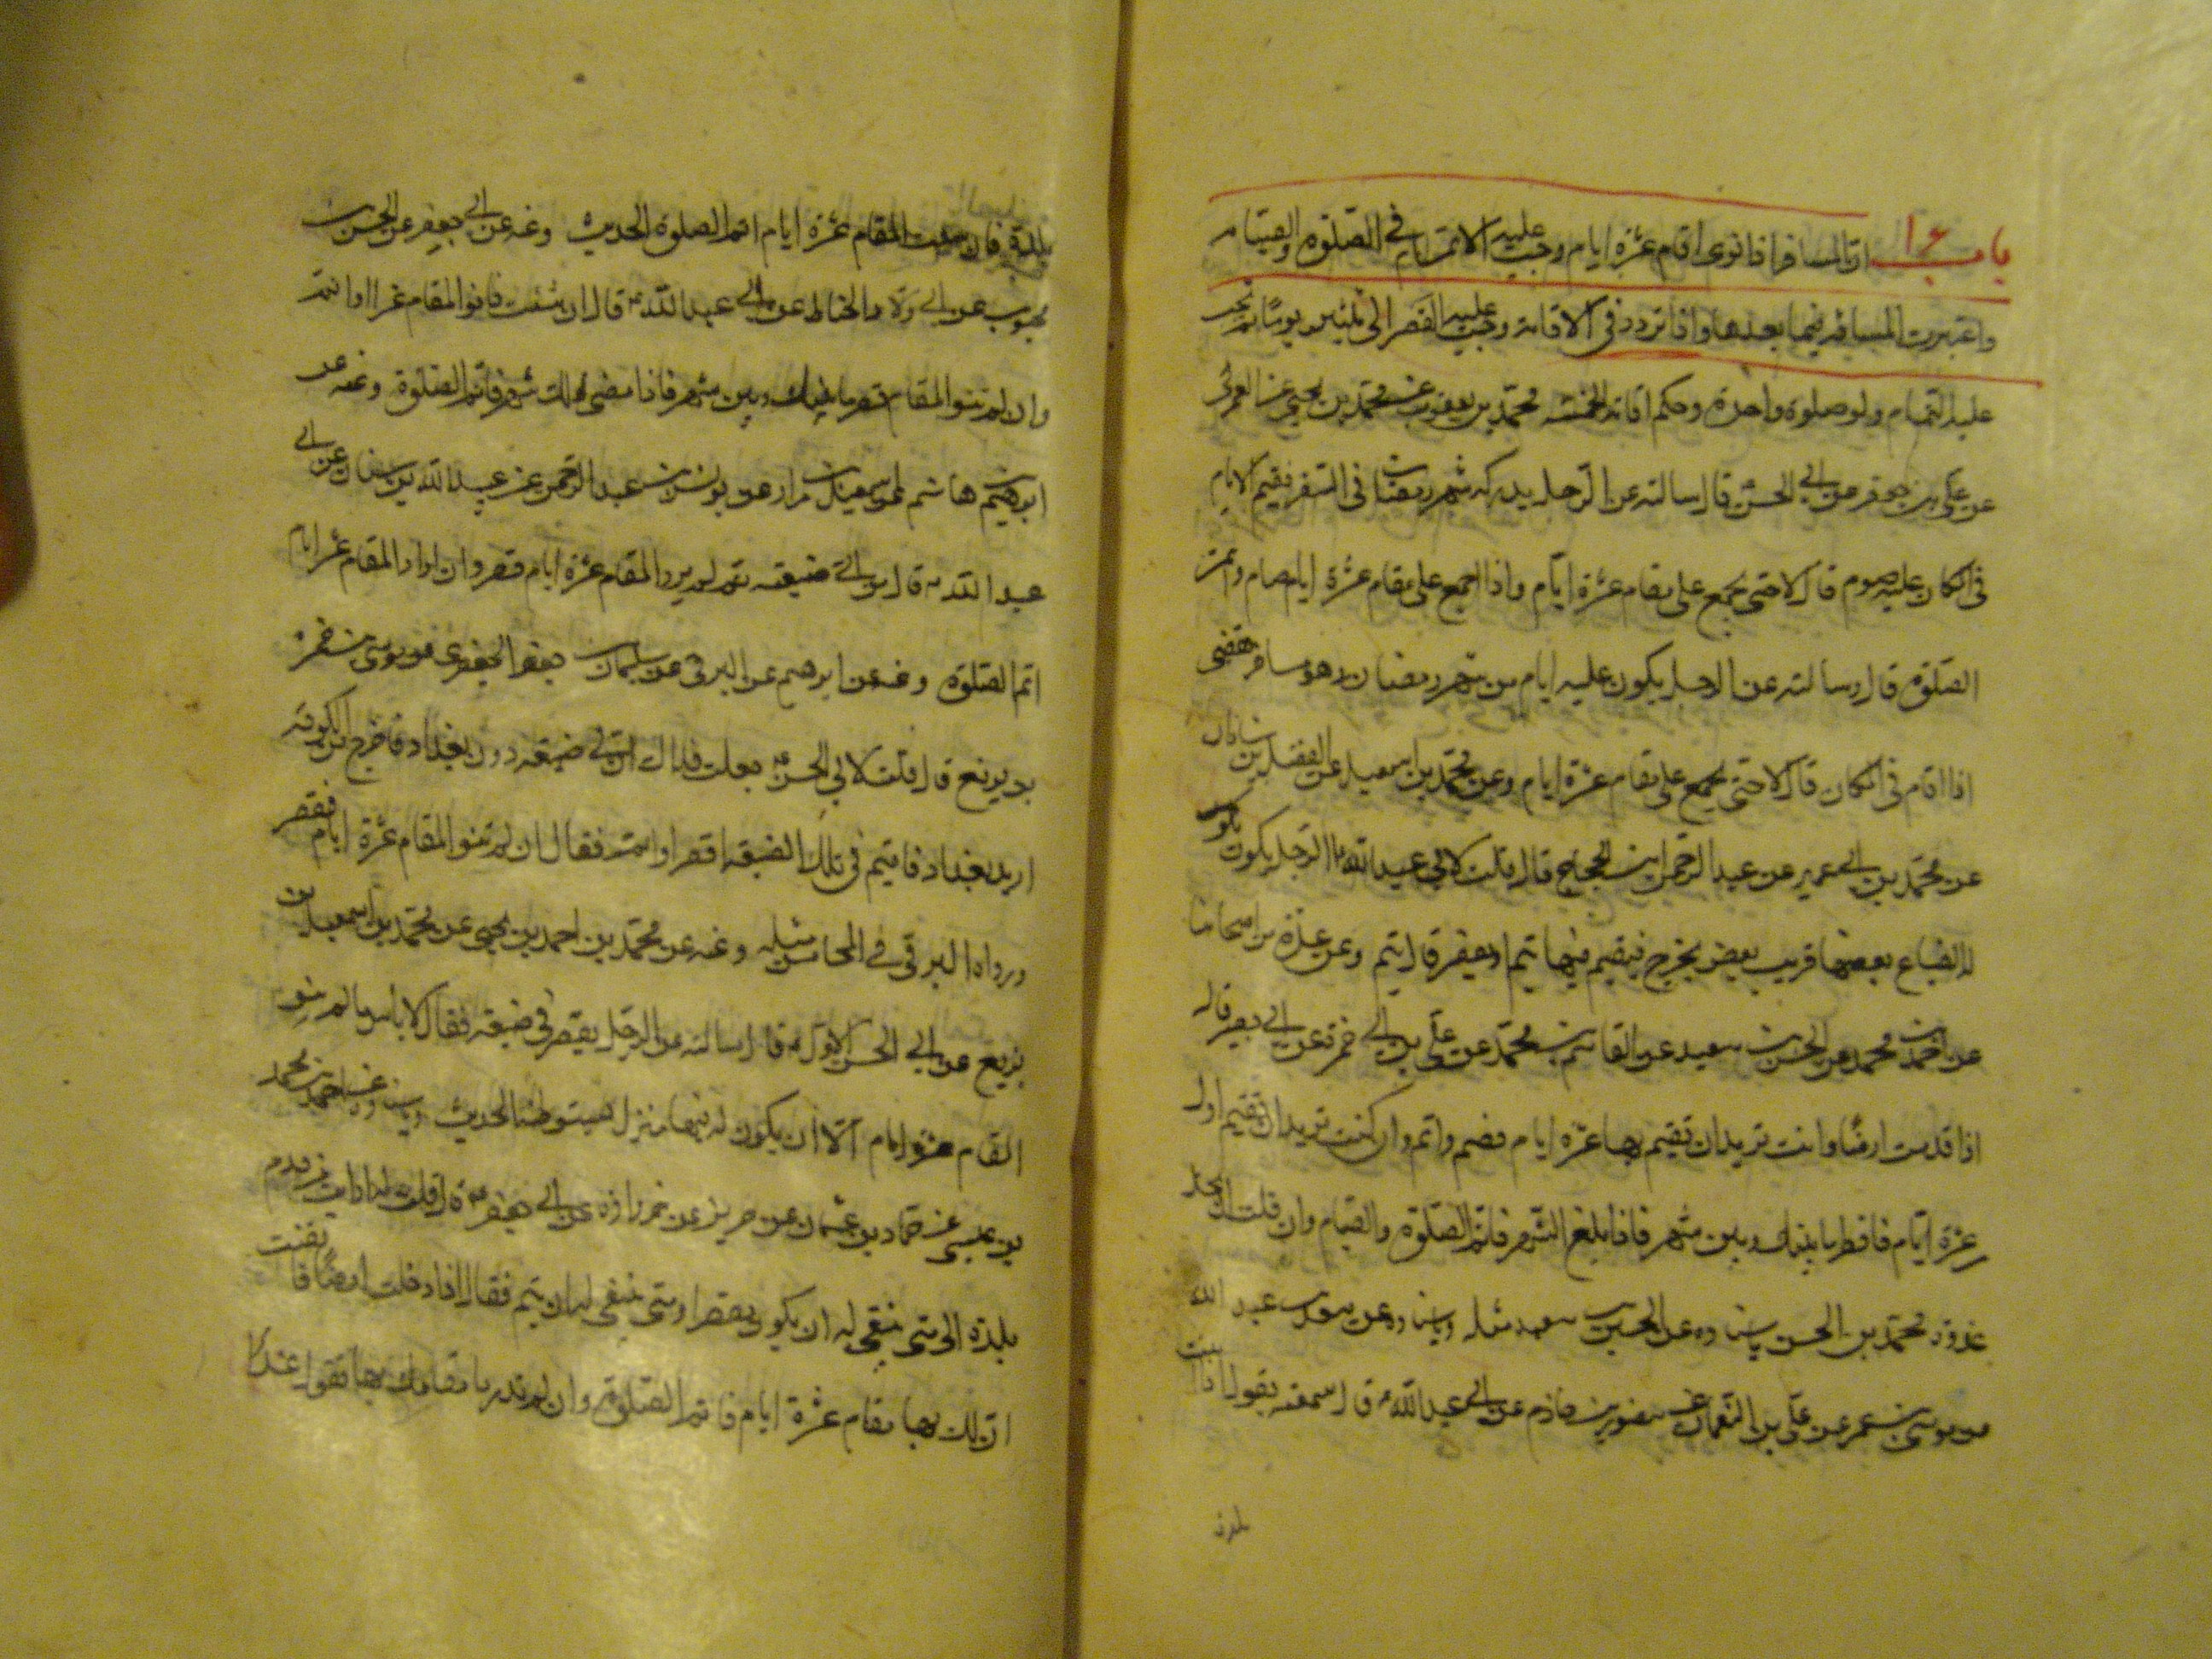 باب ١٥ ان المسافر اذا نوى اقام عشرة ايام وجب عليه الاتمام في الصلوة والصيام
واعتبرت المسافة فيما بعدها واذا تردد في الاقامة وجب عليه القصر الى ثلثين يوما ثم يجب
عليه التمام ولو صلوة واحدة وحكم اقامة الخمسة محمد بن يعقوب عن محمد بن يحيى عن العمركى
عن علي بن جعفر عن ابي الحسن قال سالته عن الرجل يدركه شهر رمضان في السفر فيقيم الايام
في المكان عليه صوم قال لا حتى يجمع على مقام عشرة ايام واذا اجمع على مقام عشرة ايام صام واتم
الصلوة قال وسالته عن الرجل يكون عليه ايام من شهر رمضان وهو مسافر يقضى
اذا اقام في المكان قال لا حتى يجمع على مقام عشرة ايام وعن محمد بن اسمعيل عن الفضل بن شاذان
عن محمد بن ابي عمير عن عبد الرحمن بن الحجاج قال قلت لابي عبد الله الرجل يكون
له الضياع بعضها قريب بعض يخرج فيقيم فيها يتم او يقصر قال يتم وعن عدة من اصحابنا
عن احمد بن محمد عن الحسين بن سعيد عن القاسم بن محمد عن علي بن ابي حمزة عن ابي بصير قال
اذا قدمت ارضا وانت تريد ان تقيم بها عشرة ايام فصم واتم وان كنت تريد ان تقيم اقل
عشرة ايام فافطر ما بينك وبين شهر فاذا بلغ الشهر فاتم الصلوة والصيام وان قلت ارتحل
غدوة محمد بن الحسن باسناده عن الحسين بن سعيد مثله وباسناده عن سعد بن عبد الله
عن موسى بن عمر عن علي بن النعمان عن منصور بن حازم عن ابي عبد الله قال سمعته يقول اذا اتيت
بلدة
بلدة فازمعت المقام عشرة ايام اتم الصلوة الحديث وعنه عن ابي جعفر عن الحسن بن
محبوب عن ابي ولاد الحناط عن ابي عبد الله قال ان شئت فانو المقام عشرا او اتم
وان لم تنو المقام فقصر ما بينك وبين شهر فاذا مضى لك شهر فاتم الصلوة وعنه عن
ابرهيم هاشم عن اسمعيل بن مرار عن يونس بن عبد الرحمن عن عبد الله بن سنان عن ابي
عبد الله قال من اتى ضيعته ثم لم يرد المقام عشرة ايام قصر وان اراد المقام عشرة ايام
اتم الصلوة وعنه عن ابرهيم عن البرقى عن سليمان جعفر الجعفرى عن موسى بن حمزة
بن بزيع قال قلت لابي الحسن جعلت فداك ان لي ضيعة دون بغداد فاخرج من الكوفة
اريد بغداد فاقيم في تلك الضيعة اقصر او اتم فقال ان لم تنو المقام عشرة ايام فقصر
ورواه البرقى في المحاسن مثله وعنه عن محمد بن احمد بن يحيى عن محمد بن اسمعيل بن
بزيع عن ابي الحسن الاول قال سالته عن الرجل يقصر في ضيعته فقال لا باس ما لم ينو
المقام عشرة ايام الا ان يكون له فيها منزل يستوطنه الحديث وباسناده عن احمد بن محمد
بن عيسى عن حماد بن عثمان عن حريز عن زرارة عن ابي جعفر قال قلت له ارايت من قدم
بلدة الى متى ينبغى له ان يكون مقصرا ومتى ينبغى له ان يتم فقال اذا دخلت ارضا فايقنت
ان لك بها مقام عشرة ايام فاتم الصلوة وان لم تدر ما مقامك بها تقول غدا